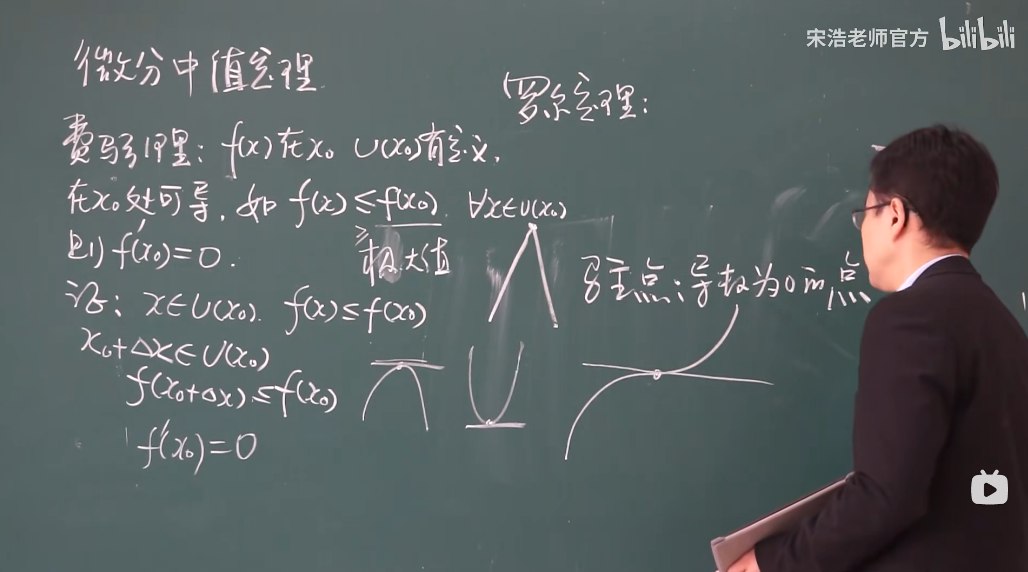 宋浩老师官方 bilibili
微分中值定理
罗尔定理:
费马引理: f(x)在x₀ U(x₀)有定义,
在x₀处可导, 如 f(x)≤f(x₀) ∀x∈U(x₀)
≥
则 f'(x₀)=0.
极大值
驻点:导数为0的点
证: x∈U(x₀). f(x)≤f(x₀)
x₀+Δx∈U(x₀)
f(x₀+Δx)≤f(x₀)
f'(x₀)=0